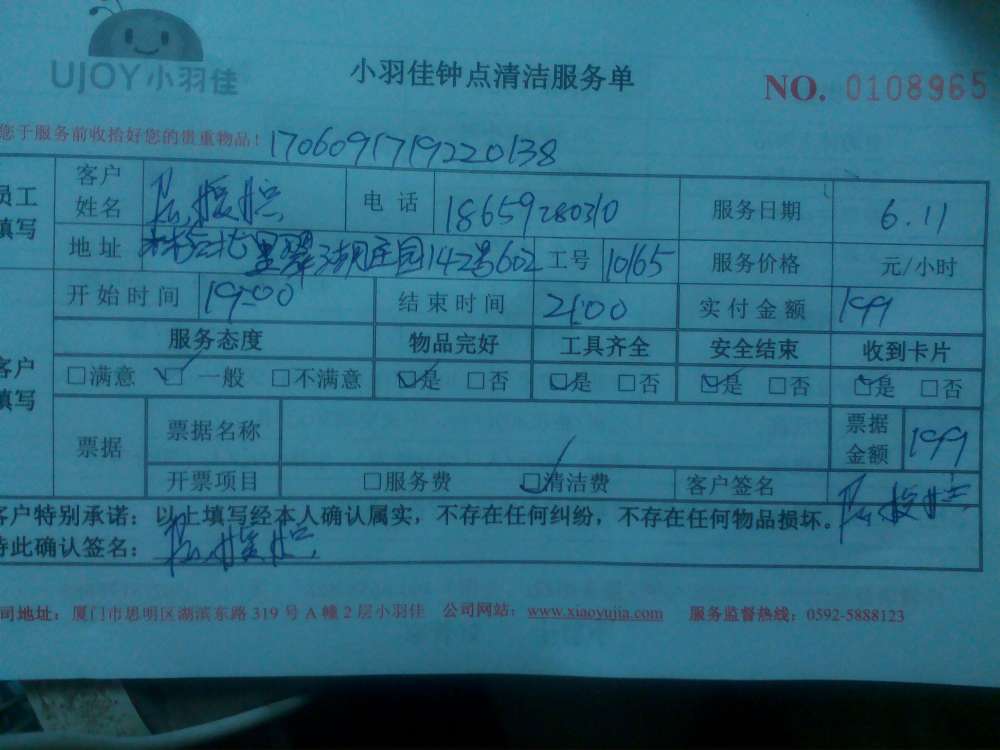 UJOY小羽佳
小羽佳钟点清洁服务单
NO. 0108965
您于服务前收拾好您的贵重物品！ 1706091719220138
员工填写
客户姓名 电话 18659280310 服务日期 6.11
地址 翠湖庄园142号602 工号 10165 服务价格 元/小时
开始时间 19:00 结束时间 21:00 实付金额 199
客户填写
服务态度 物品完好 工具齐全 安全结束 收到卡片
□满意 □一般 □不满意 □是 □否 □是 □否 □是 □否 □是 □否
票据 票据名称 票据金额 199
开票项目 □服务费 □清洁费 客户签名
客户特别承诺：以上填写经本人确认属实，不存在任何纠纷，不存在任何物品损坏。
特此确认签名：
司地址：厦门市思明区湖滨东路 319 号 A 幢 2 层小羽佳 公司网站：www.xiaoyujia.com 服务监督热线：0592-5888123